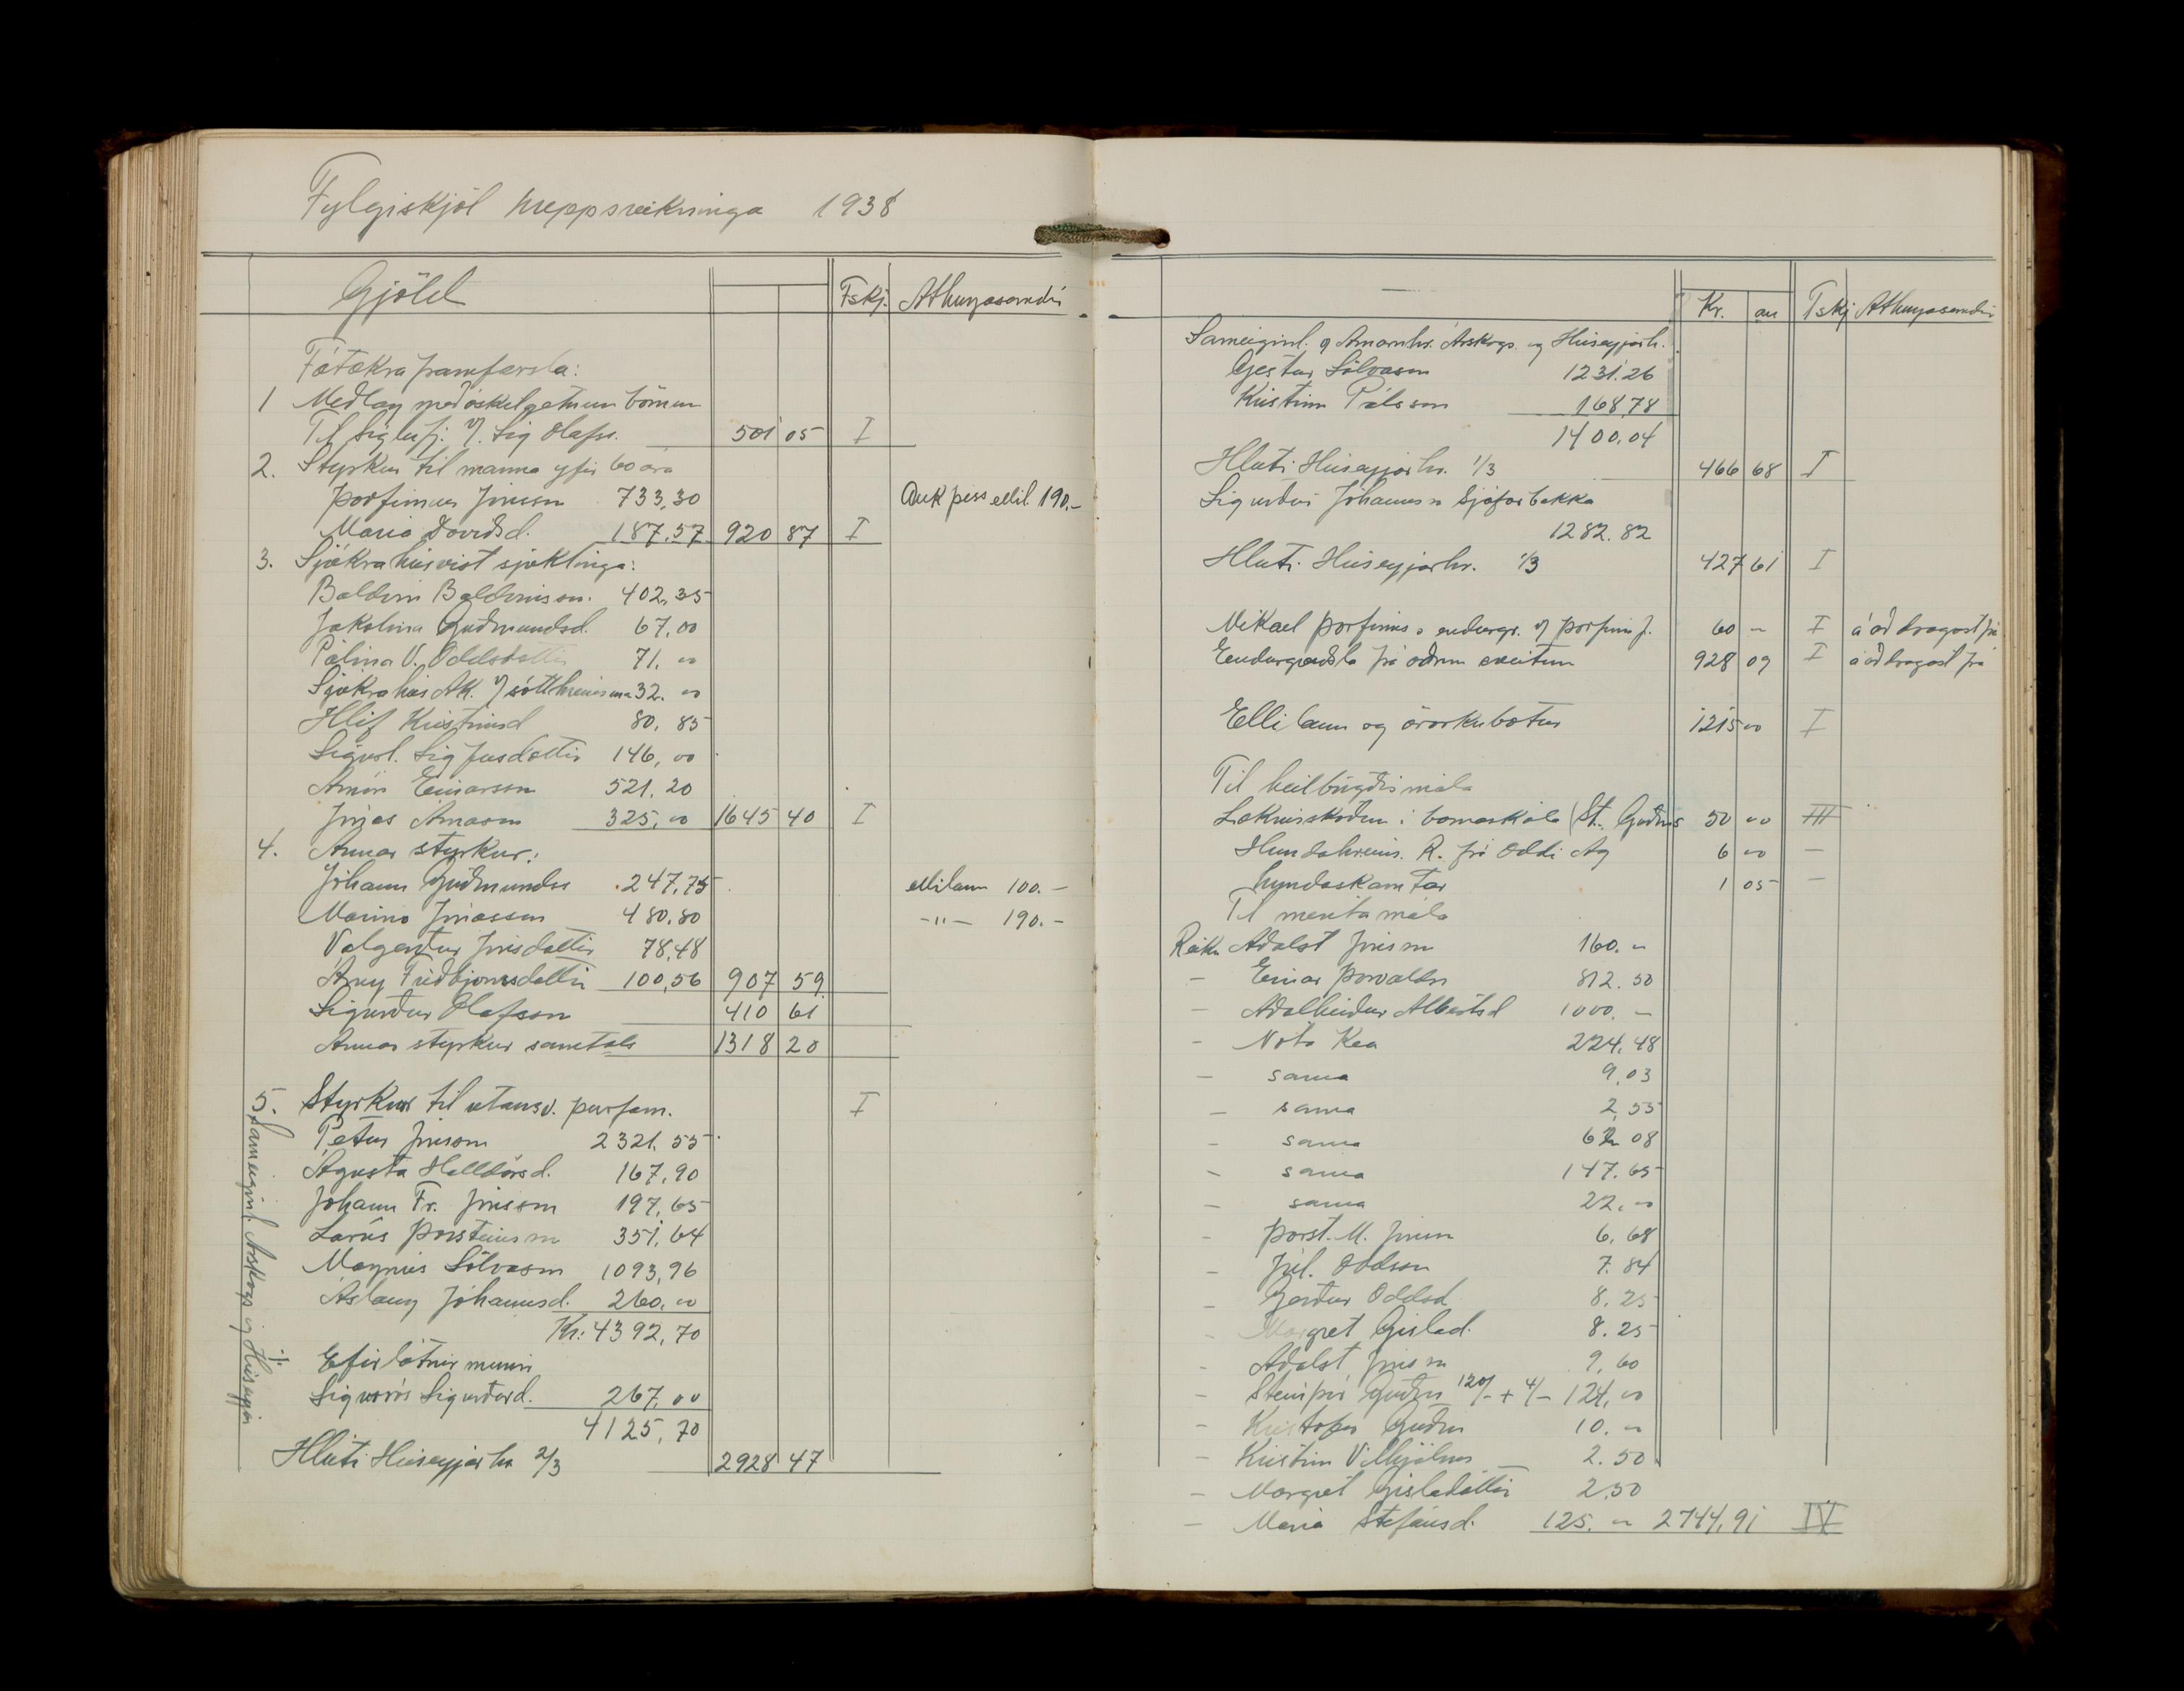 Fylgiskjöl hreppsreikninga 1938
Gjöld Fskj. Athugasemdir
Fátækraframfærsla:
1 Meðlag með óskilgetnum börnum
Til Sigluf. v/ Sig Ólafss. 501 05 I
2. Styrkur til manna yfir 60 ára
Þorfinnur Jónsson 733,30 Auk þess ellil. 190.-
María Davíðsd. 187.57 920 87 I
3. Sjúkrahúsvist sjúklinga:
Baldvin Baldvinsson. 402,35
Jakobína Guðmundsd. 67,00
Pálína V. Oddsdóttir 71. 00
Sjúkrahús Ak. v/ sótthreinsunar 32. 00
Hlíf Kristinsd 80. 85
Sigurl. Sigfúsdóttir 146, 00
Arnór Einarsson 521. 20
Jónas Árnason 325, 00 1645 40 I
4. Annar styrkur:
Jóhann Guðmundss 247,75 ellilaun 100.-
Marinó Jónasson 480.80 -"- 190.-
Valgerður Jónsdóttir 78,48
Anny Friðbjörnsdóttir 100,56 907 59
Sigurður Ólafsson 410 61
Annar styrkur samtals 1318 20
5. Styrkur til utansv. þurfam. I
Sameiginl. Árskógs og Húseyjar
Pétur Jónsson 2321. 55
Ágústa Halldórsd. 167,90
Jóhann Fr. Jónsson 197,65
Lárus Þorsteinsson 351,64
Magnús Sölvason 1093,96
Áslaug Jóhannsd. 260,00
Kr: 4392,70
÷ Eftirlátnir munir
Sigurrós Sigurðard. 267,00
4125,70
Hluti Húseyjarhr 2/3 2928 47
— Kr. au Fskj Athugasemdir
Sameiginl. v/ Arnarnhr. Árskógs. og Húseyjarh.
Gestur Sölvason 1231.26
Kristinn Pálsson 168,78
1400,04
Hluti Húseyjarhr. 1/3 466 68 I
Sigurður Jóhannss Sjáfarbakka
1282.82
Hluti Húseyjarhr. 1/3 427 61 I
Mikael Þorfinns. endurgr. v/ Þorfinn J. 60 - I á að dragast frá
Endurgreiðsla frá öðrum sveitum 928 09 I á að dragast frá
Ellilaun og örorkubætur 1215 00 I
Til heilbrigðismála
Læknisskoðun í barnaskóla (St. Guðms 50 00 III
Hundahreins. R. frá Oddi Ag 6 00 -
hundaskamtar 1 05 -
Til mentamála
Reikn Aðalst Jónsson 160. -
- Einar Þorvaldss 812.50
- Aðalheiður Albertsd 1000. -
- Nóta Kea 224,48
- sama 9,03
- sama 2,55
- sama 62 08
- sama 147.65
- sama 22.00
- Þorst. M. Jónsson 6,68
- Júl. Oddson 7.84
- Gerður Oddsd 8.25
- Margrét Gíslad. 8.25
- Aðalst Jónsson 9,60
- Steinþór Guðms 120/- + 4/- 124,00
- Kristófer Guðm 10. -
- Kristinn Vilhjálms 2.50
- Margrét Gísladóttir 2,50
- María Stefánsd. 125. - 2744,91 IV